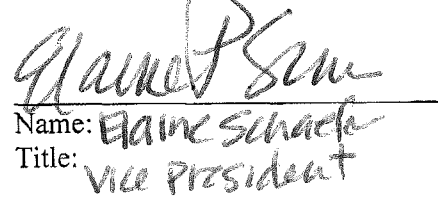 Elaine P
Name: Elaine Schaefer
Title: Vice President